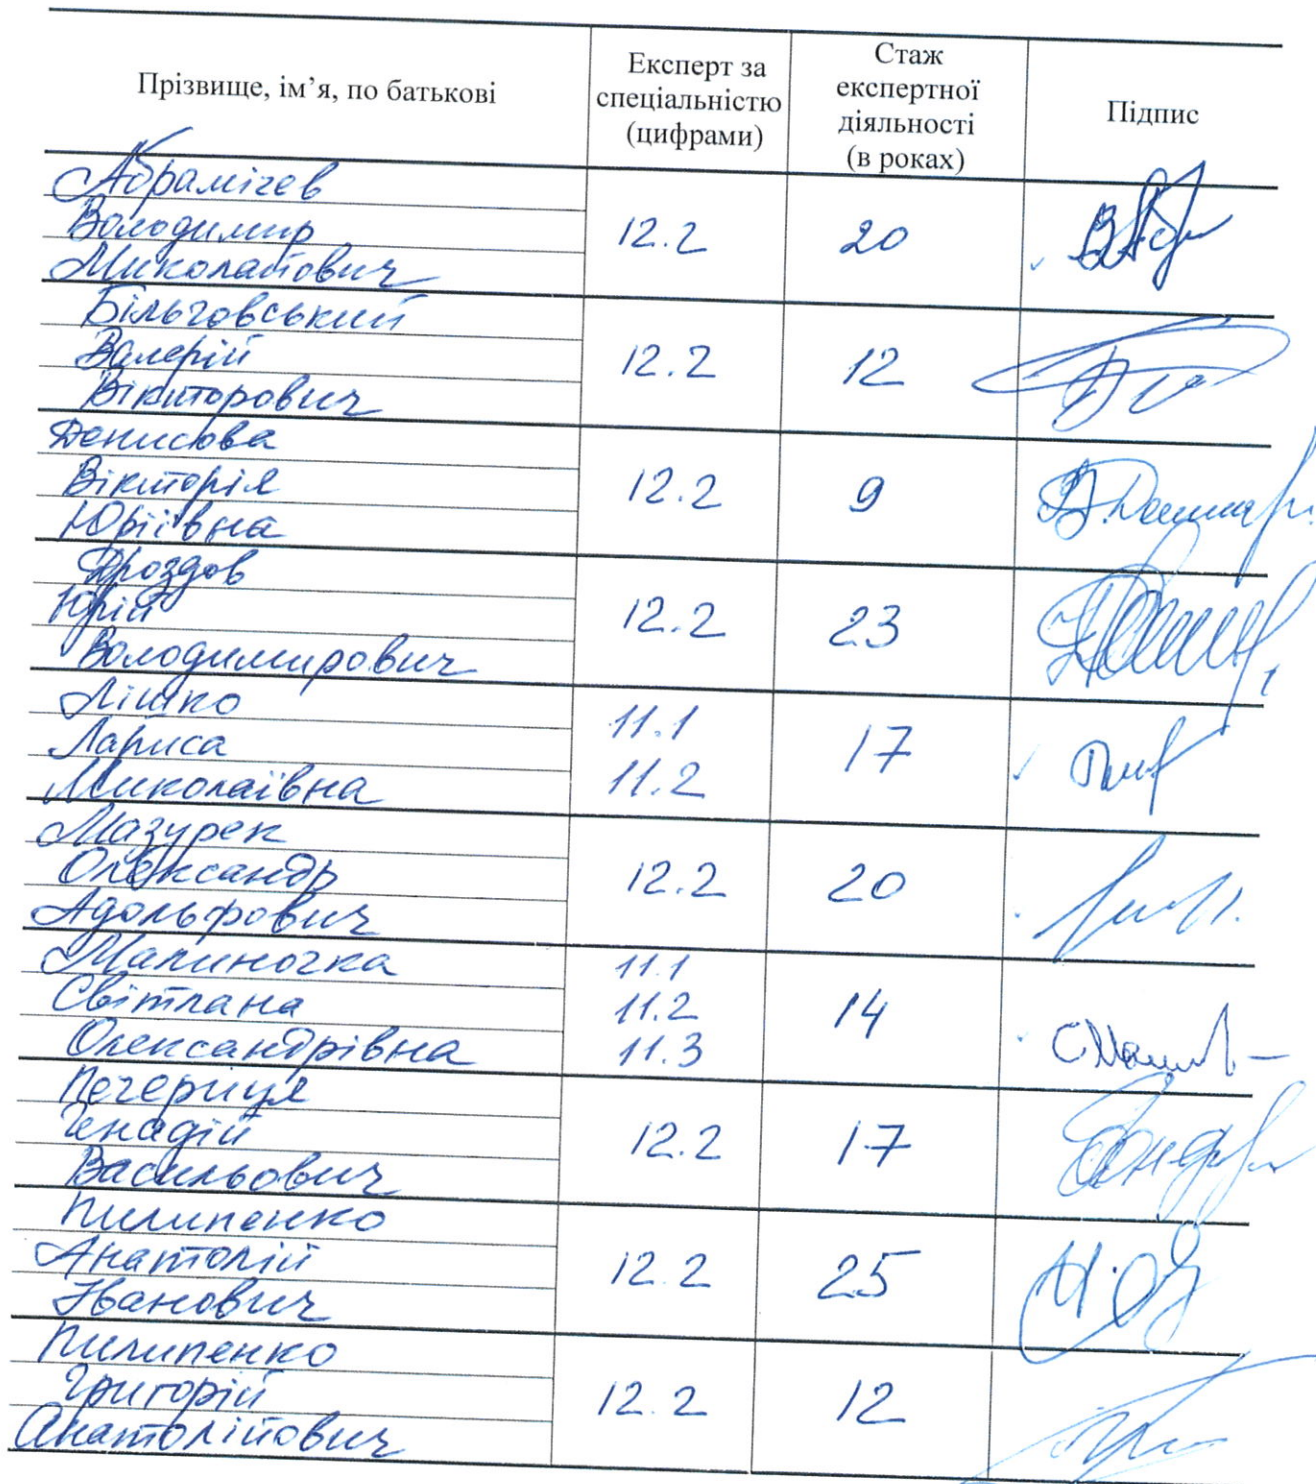 Прізвище, ім’я, по батькові
Експерт за
спеціальністю
(цифрами)
Стаж
експертної
діяльності
(в роках)
Підпис
Абрамічев
Володимир
Миколайович
12.2
20
Більговський
Валерій
Вікторович
12.2
12
Денисова
Вікторія
Юріївна
12.2
9
Дроздов
Юрій
Володимирович
12.2
23
Лішко
Лариса
Миколаївна
11.1
11.2
17
Мазурек
Олександр
Адольфович
12.2
20
Малиночка
Світлана
Олександрівна
11.1
11.2
11.3
14
Печериця
Генадій
Васильович
12.2
17
Пилипенко
Анатолій
Іванович
12.2
25
Пилипенко
Григорій
Анатолійович
12.2
12